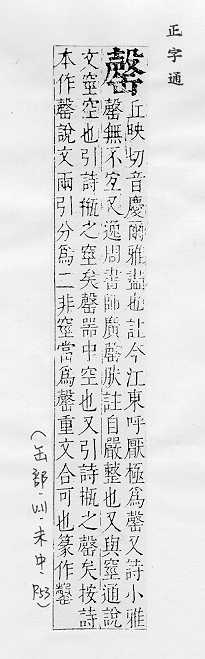 正字通
罄
丘映切音慶爾雅盡也註今江東呼厭極爲罄又詩小雅
罄無不宐又逸周書師廣罄肰註自嚴整也又與通說
文空也引詩甁之矣罄器中空也又引詩甁之罄矣按詩
本作罄說文兩引分爲二非當爲罄重文合可也篆作
(缶部.四.未中 P53)